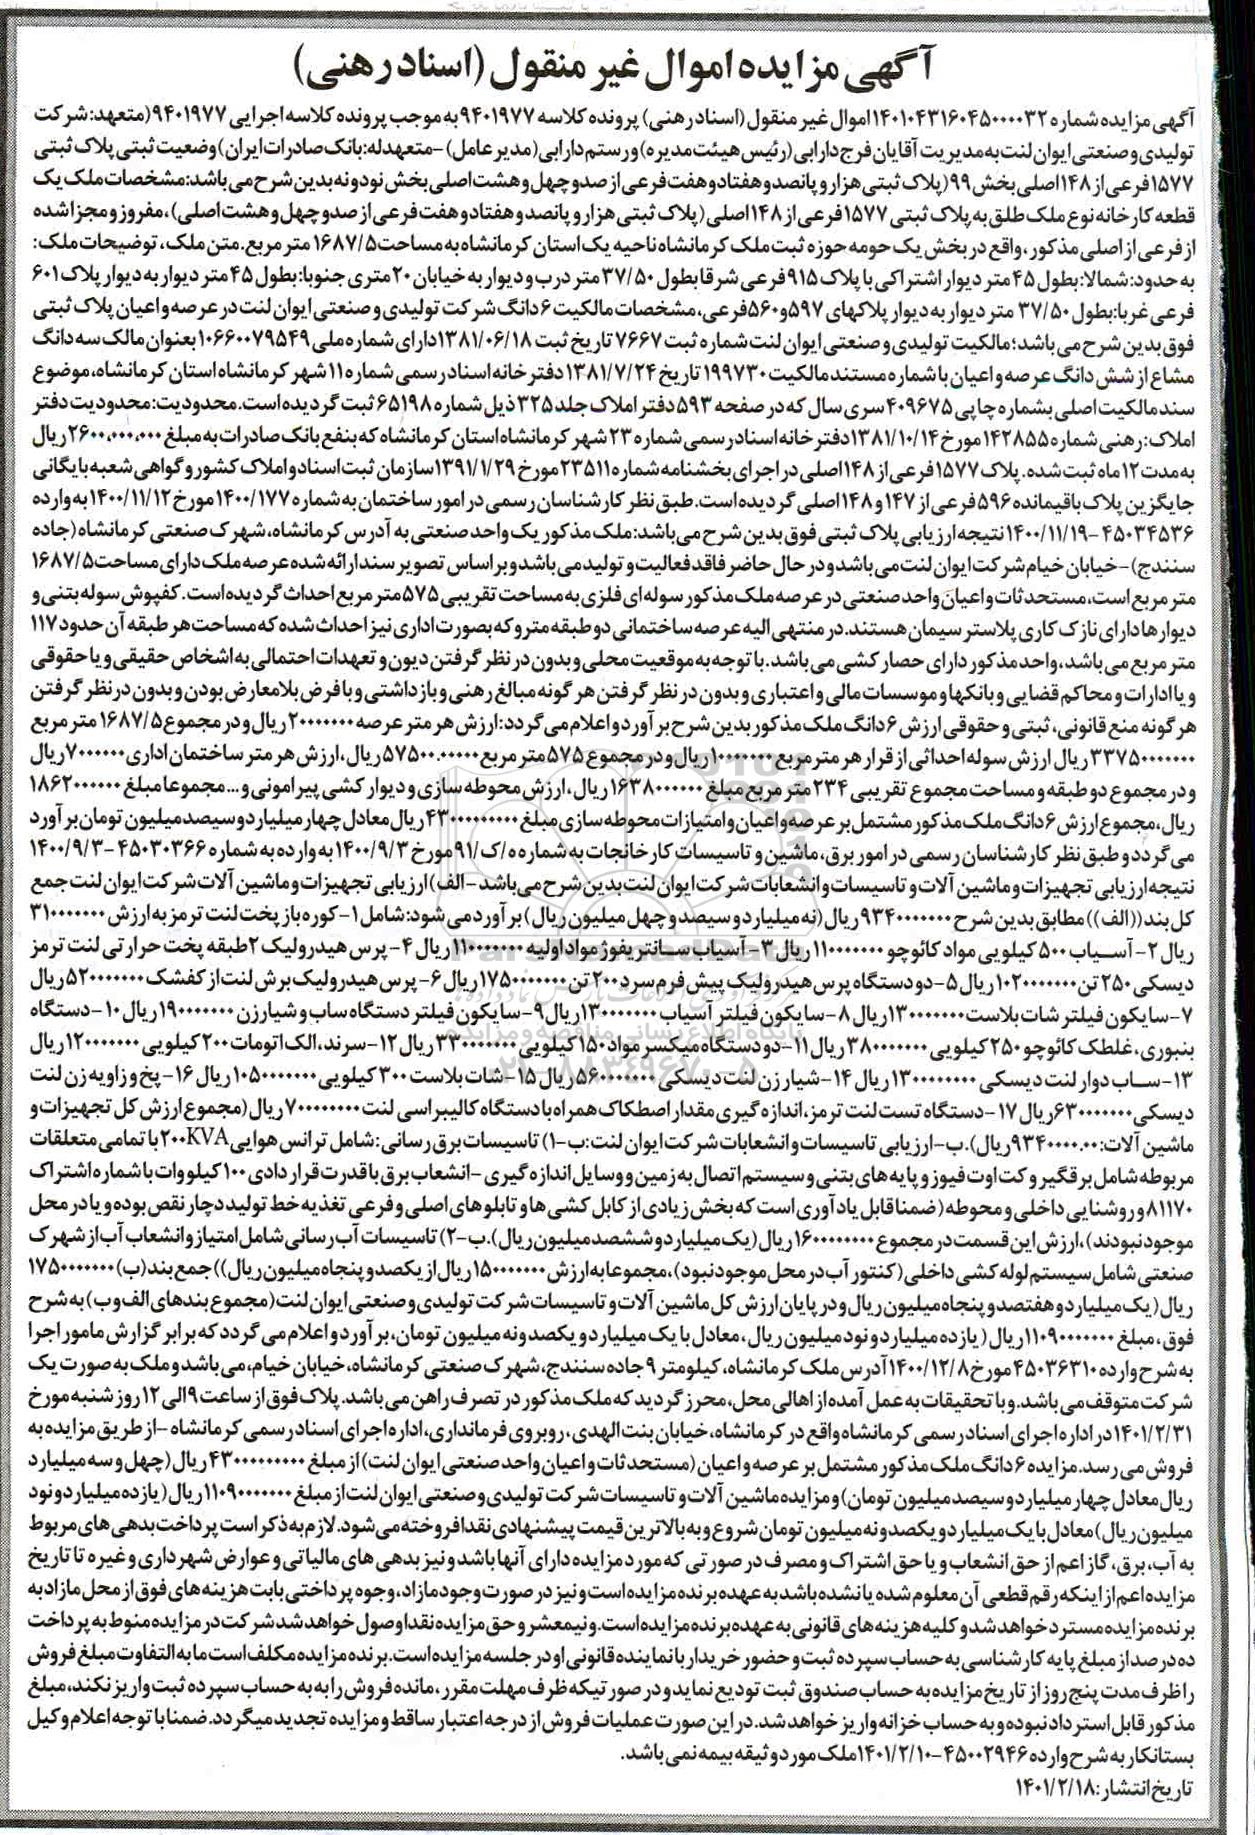 آگهی مزایده اموال غیر منقول (اسناد رهنی)
آگهی مزایده شماره ۱۴۰۱۰۴۳۱۶۰۴۵۰۰۰۰۳۲ اموال غیر منقول (اسناد رهنی) پرونده کلاسه ۹۴۰۱۹۷۷ به موجب پرونده کلاسه اجرایی ۹۴۰۱۹۷۷ (متعهد: شرکت
تولیدی و صنعتی ایوان لنت به مدیریت آقایان فرج دارابی (رئیس هیئت مدیره) و رستم دارابی (مدیر عامل) - متعهدله: بانک صادرات ایران) وضعیت ثبتی پلاک ثبتی
۱۵۷۷ فرعی از ۱۴۸ اصلی بخش ۹۹ (پلاک ثبتی هزار و پانصد و هفتاد و هفت فرعی از صد و چهل و هشت اصلی بخش نود و نه بدین شرح می باشد: مشخصات ملک یک
قطعه کارخانه نوع ملک طلق به پلاک ثبتی ۱۵۷۷ فرعی از ۱۴۸ اصلی (پلاک ثبتی هزار و پانصد و هفتاد و هفت فرعی از صد و چهل و هشت اصلی)، مفروز و مجزا شده
از فرعی از اصلی مذکور، واقع در بخش یک حومه حوزه ثبت ملک کرمانشاه ناحیه یک استان کرمانشاه به مساحت ۱۶۸۷/۵ متر مربع. متن ملک، توضیحات ملک:
به حدود: شمالا: بطول ۴۵ متر دیوار اشتراکی با پلاک ۹۱۵ فرعی شرقا بطول ۳۷/۵۰ متر درب و دیوار به خیابان ۲۰ متری جنوبا: بطول ۴۵ متر دیوار به دیوار پلاک ۶۰۱
فرعی غربا: بطول ۳۷/۵۰ متر دیوار به دیوار پلاکهای ۵۹۷ و ۵۶۰ فرعی، مشخصات مالکیت ۶ دانگ شرکت تولیدی و صنعتی ایوان لنت در عرصه و اعیان پلاک ثبتی
فوق بدین شرح می باشد؛ مالکیت تولیدی و صنعتی ایوان لنت شماره ثبت ۷۶۶۷ تاریخ ثبت ۱۳۸۱/۰۶/۱۸ دارای شماره ملی ۱۰۶۶۰۰۷۹۵۴۹ بعنوان مالک سه دانگ
مشاع از شش دانگ عرصه و اعیان با شماره مستند مالکیت ۱۹۹۷۳۰ تاریخ ۱۳۸۱/۷/۲۴ دفترخانه اسناد رسمی شماره ۱۱ شهر کرمانشاه استان کرمانشاه، موضوع
سند مالکیت اصلی بشماره چاپی ۴۰۹۶۷۵ سری سال که در صفحه ۵۹۳ دفتر املاک جلد ۳۲۵ ذیل شماره ۶۵۱۹۸ ثبت گردیده است. محدودیت: محدودیت دفتر
املاک: رهنی شماره ۱۴۲۸۵۵ مورخ ۱۳۸۱/۱۰/۱۴ دفترخانه اسناد رسمی شماره ۲۳ شهر کرمانشاه استان کرمانشاه که بنفع بانک صادرات به مبلغ ۲۶۰۰،۰۰۰،۰۰۰ ریال
به مدت ۱۲ ماه ثبت شده. پلاک ۱۵۷۷ فرعی از ۱۴۸ اصلی در اجرای بخشنامه شماره ۲۳۵۱۱ مورخ ۱۳۹۱/۱/۲۹ سازمان ثبت اسناد و املاک کشور و گواهی شعبه بایگانی
جایگزین پلاک باقیمانده ۵۹۶ فرعی از ۱۴۷ و ۱۴۸ اصلی گردیده است. طبق نظر کارشناسان رسمی در امور ساختمان به شماره ۱۴۰۰/۱۷۷ مورخ ۱۴۰۰/۱۱/۱۲ به وارده
۴۵۰۳۴۵۳۶-۱۴۰۰/۱۱/۱۹ نتیجه ارزیابی پلاک ثبتی فوق بدین شرح می باشد: ملک مذکور یک واحد صنعتی به آدرس کرمانشاه، شهرک صنعتی کرمانشاه (جاده
سنندج) - خیابان خیام شرکت ایوان لنت می باشد و در حال حاضر فاقد فعالیت و تولید می باشد و بر اساس تصویر سند ارائه شده عرصه ملک دارای مساحت ۱۶۸۷/۵
متر مربع است، مستحدثات و اعیان واحد صنعتی در عرصه ملک مذکور سوله ای فلزی به مساحت تقریبی ۵۷۵ متر مربع احداث گردیده است. کفپوش سوله بتنی و
دیوارها دارای نازک کاری پلاستر سیمان هستند. در منتهی الیه عرصه ساختمانی دو طبقه متروکه بصورت اداری نیز احداث شده که مساحت هر طبقه آن حدود ۱۱۷
متر مربع می باشد، واحد مذکور دارای حصارکشی می باشد. با توجه به موقعیت محلی و بدون در نظر گرفتن دیون و تعهدات احتمالی به اشخاص حقیقی و یا حقوقی
و یا ادارات و محاکم قضایی و بانکها و موسسات مالی و اعتباری و بدون در نظر گرفتن هرگونه مبالغ رهنی و بازداشتی و با فرض بلامعارض بودن و بدون در نظر گرفتن
هرگونه منع قانونی، ثبتی و حقوقی ارزش ۶ دانگ ملک مذکور بدین شرح برآورد و اعلام می گردد: ارزش هر متر عرصه ۲۰۰۰۰۰۰۰ ریال و در مجموع ۱۶۸۷/۵ متر مربع
۳۳۷۵۰۰۰۰۰۰۰ ریال ارزش سوله احداثی از قرار هر متر مربع ۱۰۰۰۰۰۰۰ ریال و در مجموع ۵۷۵ متر مربع ۵۷۵۰۰۰۰۰۰۰ ریال، ارزش هر متر ساختمان اداری ۷۰۰۰۰۰۰ ریال
و در مجموع دو طبقه و مساحت مجموع تقریبی ۲۳۴ متر مربع مبلغ ۱۶۳۸۰۰۰۰۰۰ ریال، ارزش محوطه سازی و دیوارکشی پیرامونی و ... مجموعا مبلغ ۱۸۶۲۰۰۰۰۰۰
ریال، مجموع ارزش ۶ دانگ ملک مذکور مشتمل بر عرصه و اعیان و امتیازات محوطه سازی مبلغ ۴۳۰۰۰۰۰۰۰۰۰ ریال معادل چهار میلیارد و سیصد میلیون تومان برآورد
می گردد و طبق نظر کارشناسان رسمی در امور برق، ماشین و تاسیسات کارخانجات به شماره ه/ک/۹۱ مورخ ۱۴۰۰/۹/۳ به وارده به شماره ۴۵۰۳۰۳۶۶-۱۴۰۰/۹/۳
نتیجه ارزیابی تجهیزات و ماشین آلات و تاسیسات و انشعابات شرکت ایوان لنت بدین شرح می باشد - الف) ارزیابی تجهیزات و ماشین آلات شرکت ایوان لنت جمع
کل بند ((الف)) مطابق بدین شرح ۹۳۴۰۰۰۰۰۰۰ ریال (نه میلیارد و سیصد و چهل میلیون ریال) برآورد می شود: شامل ۱- کوره باز پخت لنت ترمز به ارزش ۳۱۰۰۰۰۰۰۰
ریال ۲- آسیاب ۵۰۰ کیلویی مواد کائوچو ۱۱۰۰۰۰۰۰۰ ریال ۳- آسیاب سانتریفوژ مواد اولیه ۱۱۰۰۰۰۰۰۰ ریال ۴- پرس هیدرولیک ۲ طبقه پخت حرارتی لنت ترمز
دیسکی ۲۵۰ تن ۱۰۲۰۰۰۰۰۰۰ ریال ۵- دو دستگاه پرس هیدرولیک پیش فرم سرد ۲۰۰ تن ۱۷۵۰۰۰۰۰۰۰ ریال ۶- پرس هیدرولیک برش لنت از کفشک ۵۲۰۰۰۰۰۰۰ ریال
۷- سایکون فیلتر شات بلاست ۱۳۰۰۰۰۰۰۰ ریال ۸- سایکون فیلتر آسیاب ۱۳۰۰۰۰۰۰۰ ریال ۹- سایکون فیلتر دستگاه ساب و شیارزن ۱۹۰۰۰۰۰۰۰ ریال ۱۰- دستگاه
بنبوری، غلطک کائوچو ۲۵۰ کیلویی ۳۸۰۰۰۰۰۰۰ ریال ۱۱- دو دستگاه میکسر مواد ۱۵۰ کیلویی ۳۳۰۰۰۰۰۰۰ ریال ۱۲- سرند، الک اتومات ۲۰۰ کیلویی ۱۲۰۰۰۰۰۰۰ ریال
۱۳- ساب دوار لنت دیسکی ۱۳۰۰۰۰۰۰۰۰ ریال ۱۴- شیارزن لنت دیسکی ۵۶۰۰۰۰۰۰۰ ریال ۱۵- شات بلاست ۳۰۰ کیلویی ۱۰۵۰۰۰۰۰۰۰ ریال ۱۶- پخ و زاویه زن لنت
دیسکی ۶۳۰۰۰۰۰۰۰ ریال ۱۷- دستگاه تست لنت ترمز، اندازه گیری مقدار اصطکاک همراه با دستگاه کالیبراسی لنت ۷۰۰۰۰۰۰۰۰ ریال (مجموع ارزش کل تجهیزات و
ماشین آلات: ۹۳۴۰۰۰۰۰۰۰ ریال). ب- ارزیابی تاسیسات و انشعابات شرکت ایوان لنت: ب-۱) تاسیسات برق رسانی: شامل ترانس هوایی ۲۰۰KVA با تمامی متعلقات
مربوطه شامل برقگیر و کت اوت فیوز و پایه های بتنی و سیستم اتصال به زمین و وسایل اندازه گیری - انشعاب برق با قدرت قراردادی ۱۰۰ کیلووات با شماره اشتراک
۸۱۱۷۰ و روشنایی داخلی و محوطه (ضمنا قابل یادآوری است که بخش زیادی از کابل کشی ها و تابلوهای اصلی و فرعی تغذیه خط تولید دچار نقص بوده و یا در محل
موجود نبودند)، ارزش این قسمت در مجموع ۱۶۰۰۰۰۰۰۰۰ ریال (یک میلیارد و ششصد میلیون ریال). ب-۲) تاسیسات آب رسانی شامل امتیاز و انشعاب آب از شهرک
صنعتی شامل سیستم لوله کشی داخلی (کنتور آب در محل موجود نبود)، مجموعا به ارزش ۱۵۰۰۰۰۰۰۰ ریال از یکصد و پنجاه میلیون ریال)) جمع بند (ب) ۱۷۵۰۰۰۰۰۰۰
ریال (یک میلیارد و هفتصد و پنجاه میلیون ریال و در پایان ارزش کل ماشین آلات و تاسیسات شرکت تولیدی و صنعتی ایوان لنت (مجموع بندهای الف و ب) به شرح
فوق، مبلغ ۱۱۰۹۰۰۰۰۰۰۰ ریال (یازده میلیارد و نود میلیون ریال، معادل با یک میلیارد و یکصد و نه میلیون تومان، برآورد و اعلام می گردد که برابر گزارش مامور اجرا
به شرح وارده ۴۵۰۳۶۳۱۰ مورخ ۱۴۰۰/۱۲/۸ آدرس ملک کرمانشاه، کیلومتر ۹ جاده سنندج، شهرک صنعتی کرمانشاه، خیابان خیام، می باشد و ملک به صورت یک
شرکت متوقف می باشد. و با تحقیقات به عمل آمده از اهالی محل، محرز گردید که ملک مذکور در تصرف راهن می باشد. پلاک فوق از ساعت ۹ الی ۱۲ روز شنبه مورخ
۱۴۰۱/۲/۳۱ در اداره اجرای اسناد رسمی کرمانشاه واقع در کرمانشاه، خیابان بنت الهدی، روبروی فرمانداری، اداره اجرای اسناد رسمی کرمانشاه - از طریق مزایده به
فروش می رسد. مزایده ۶ دانگ ملک مذکور مشتمل بر عرصه و اعیان (مستحدثات و اعیان واحد صنعتی ایوان لنت) از مبلغ ۴۳۰۰۰۰۰۰۰۰۰ ریال (چهل و سه میلیارد
ریال معادل چهار میلیارد و سیصد میلیون تومان) و مزایده ماشین آلات و تاسیسات شرکت تولیدی و صنعتی ایوان لنت از مبلغ ۱۱۰۹۰۰۰۰۰۰۰ ریال (یازده میلیارد و نود
میلیون ریال) معادل با یک میلیارد و یکصد و نه میلیون تومان شروع و به بالاترین قیمت پیشنهادی نقدا فروخته می شود. لازم به ذکر است پرداخت بدهی های مربوط
به آب، برق، گاز اعم از حق انشعاب و یا حق اشتراک و مصرف در صورتی که مورد مزایده دارای آنها باشد و نیز بدهی های مالیاتی و عوارض شهرداری و غیره تا تاریخ
مزایده اعم از اینکه رقم قطعی آن معلوم شده یا نشده باشد به عهده برنده مزایده است و نیز در صورت وجود مازاد، وجوه پرداختی بابت هزینه های فوق از محل مازاد به
برنده مزایده مسترد خواهد شد و کلیه هزینه های قانونی به عهده برنده مزایده است. و نیم عشر و حق مزایده نقدا وصول خواهد شد شرکت در مزایده منوط به پرداخت
ده درصد از مبلغ پایه کارشناسی به حساب سپرده ثبت و حضور خریدار یا نماینده قانونی او در جلسه مزایده است. برنده مزایده مکلف است مابه التفاوت مبلغ فروش
را ظرف مدت پنج روز از تاریخ مزایده به حساب صندوق ثبت تودیع نماید و در صورتیکه ظرف مهلت مقرر، مانده فروش را به حساب سپرده ثبت واریز نکند، مبلغ
مذکور قابل استرداد نبوده و به حساب خزانه واریز خواهد شد. در این صورت عملیات فروش از درجه اعتبار ساقط و مزایده تجدید میگردد. ضمنا با توجه اعلام وکیل
بستانکار به شرح وارده ۴۵۰۰۲۹۴۶-۱۴۰۱/۲/۱۰ ملک مورد وثیقه بیمه نمی باشد.
تاریخ انتشار: ۱۴۰۱/۲/۱۸